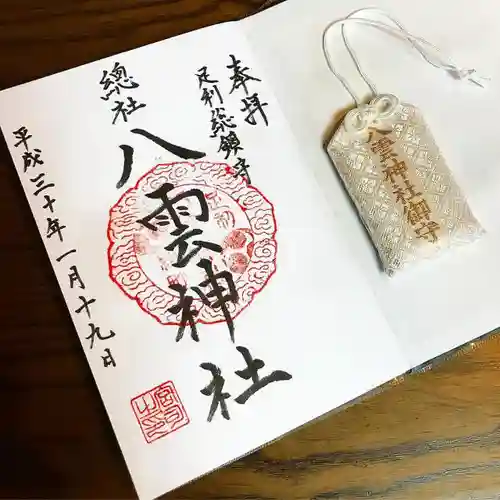 奉拝
足利総鎮守
總社
八雲神社
平成三十年一月十九日
八雲神社御守